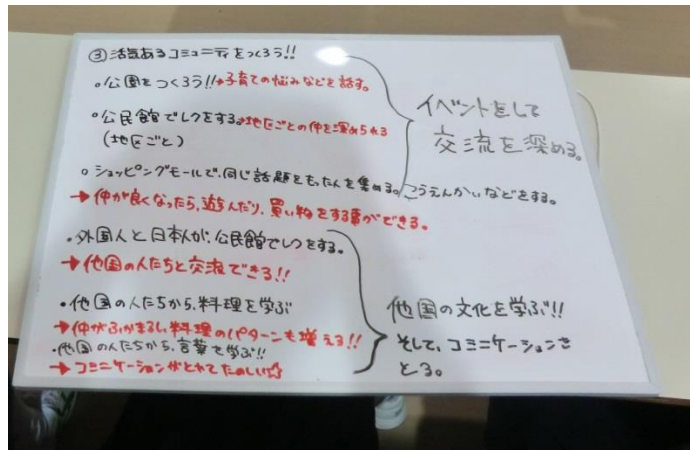 ③活気あるコミュニティをつくろう!!
○公園をつくろう!!→子育ての悩みなどを話す。
○公民館でレクをする。→地区ごとの仲を深められる
(地区ごと)
○ショッピングモールで、同じ話題をもった人を集める。こうえんかいなどをする。
→仲が良くなったら、遊んだり、買い物をする事ができる。
イベントをして
交流を深める。
・外国人と日本人が、公民館でレクをする。
→他国の人たちと交流できる!!
・他国の人たちから、料理を学ぶ
→仲がふかまるし、料理のパターンも増える!!
・他国の人たちから、言葉を学ぶ!!
→コミニケーションがとれてたのしい☆
他国の文化を学ぶ!!
そして、コミニケーションを
とる。